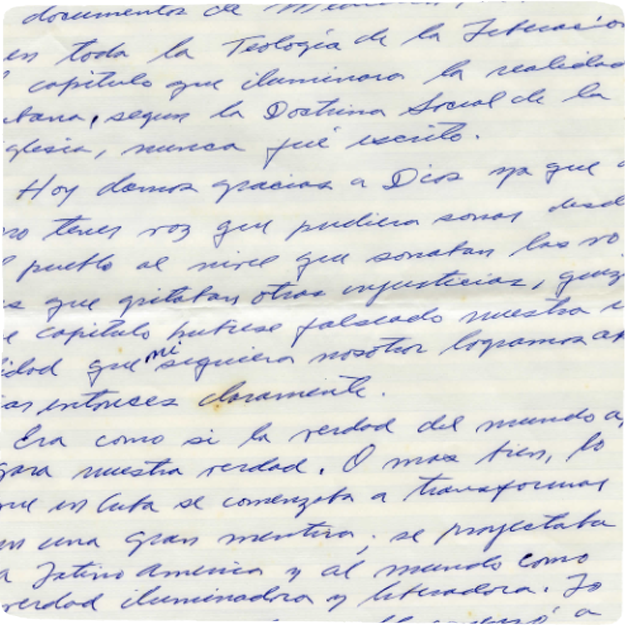 documentos de
en toda la Teología de la Liberación
capítulo que iluminara la realidad
bana, según la Doctrina Social de la
glesia, nunca fué escrito.
Hoy damos gracias a Dios ya que
no tener voz que pudiera sonar desd
l pueblo al nivel que sonaban las vo
es que gritaban otras injusticias, quiz
e capítulo hubiese falseado nuestra
idad que ni siquiera nosotros logramos
entonces claramente.
Era como si la verdad del mundo a
gara nuestra verdad. O mas bien, lo
que en Cuba se comenzaba a transformar
en una gran mentira; se proyectaba
a Latino America y al mundo como
verdad iluminadora y liberadora. Lo